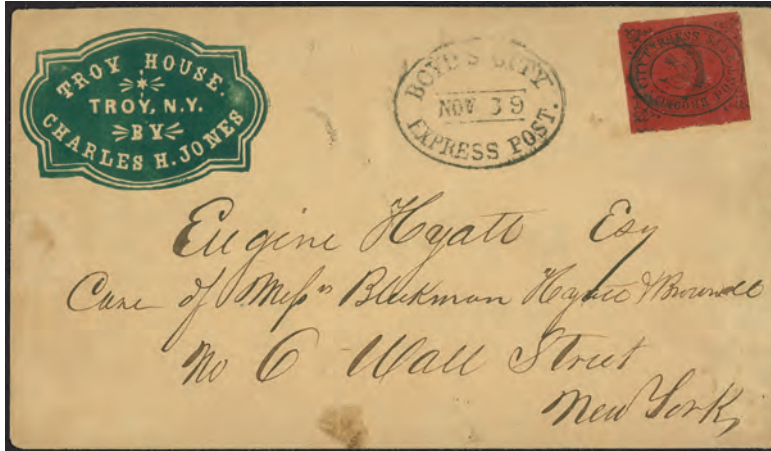 TROY HOUSE.
TROY, N.Y.
BY
CHARLES H. JONES
BOYD'S CITY
NOV 39
EXPRESS POST.
Eugine Hyatt Esq
Care of Messrs Blakman Hyatt & Brownell
No 6 Wall Street
New York,